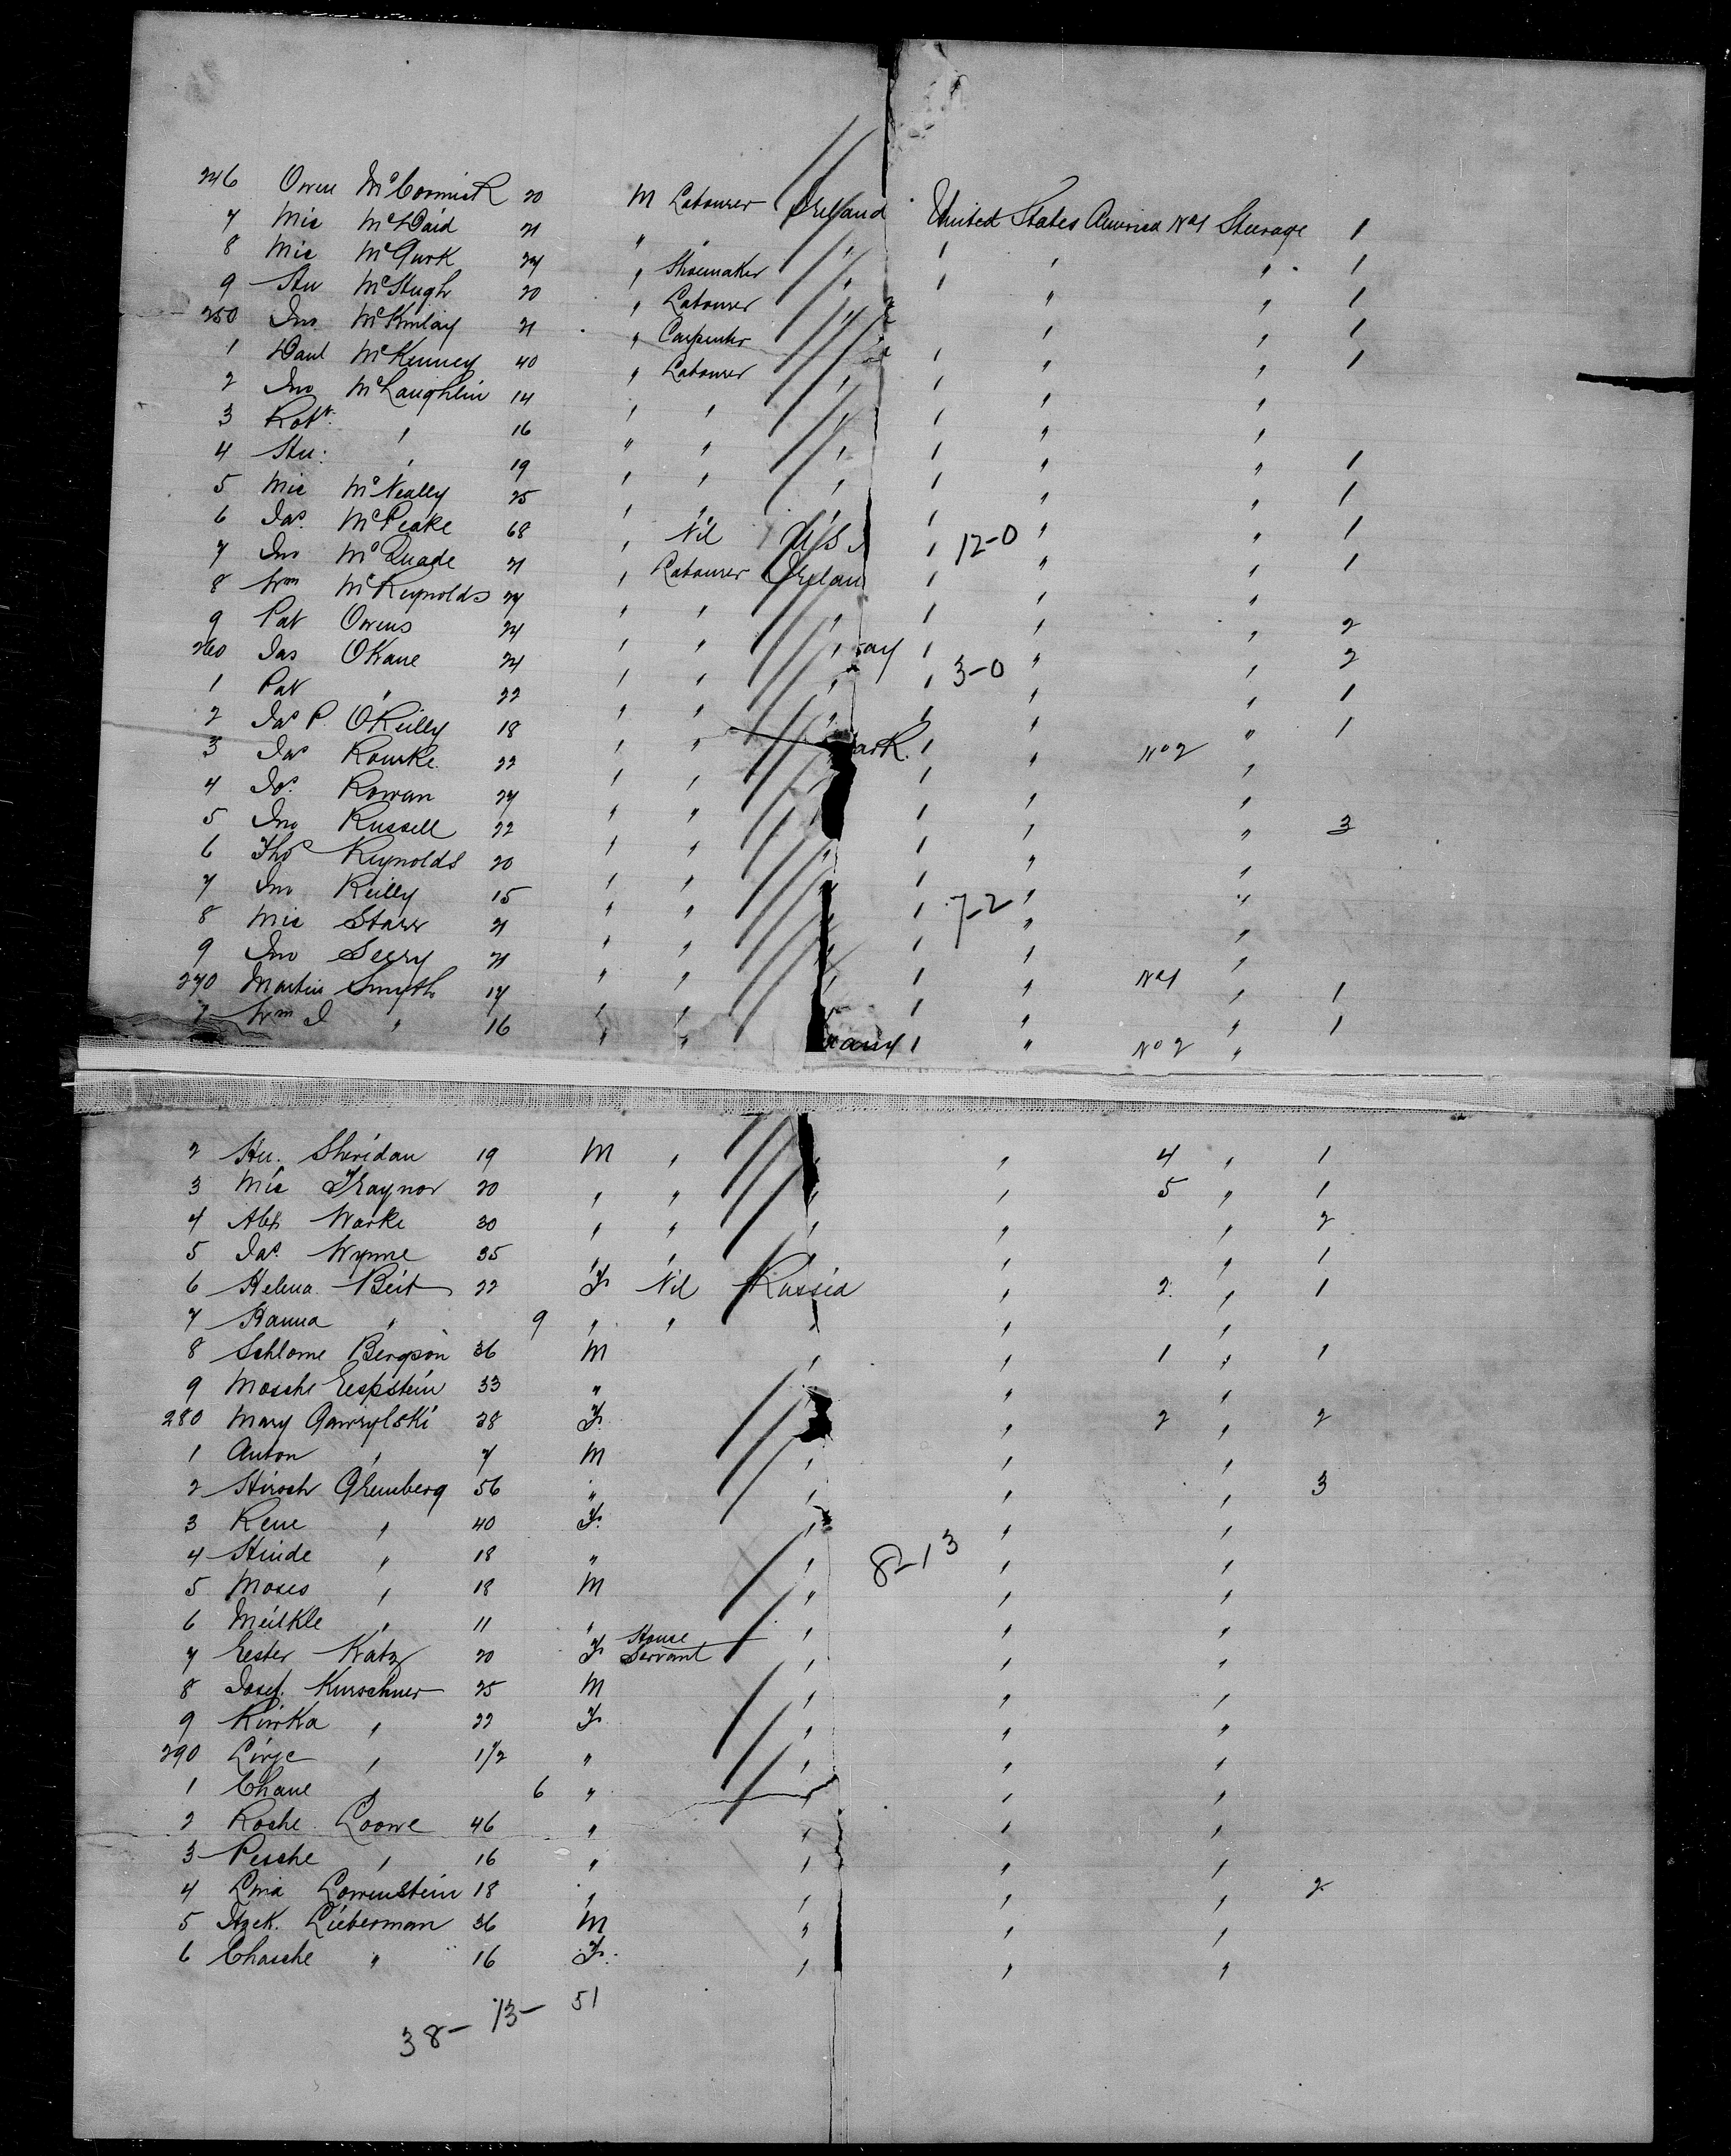 246 Owen McCormick 20 M Labourer Ireland United States America No 1 Steerage 1
7 Mic McDaid 21 " " " " " " 1
8 Mic McGurk 24 " Shoemaker " " " " 1
9 Hu McHugh 20 " Labourer " " " 1
250 Jno McKinlay 21 " Carpenter " " " " 1
1 Danl McKenney 40 " Labourer " " " "
2 Jno McLaughlin 14 " " " " " "
3 Robt " 16 " " " " " " 1
4 Hu: " 19 " " " " " " 1
5 Mic McNeally 25 " " " " " " 1
6 Jas. McPeake 68 " Nil U.S. " 12-0 " " 1
7 Jno McQuade 21 " Labourer Irelan " " "
8 Wm McReynolds 24 " " " " " " 2
9 Pat Owens 24 " " " " " " 2
260 Jas OKane 24 " " " " 3-0 " " 1
1 Pat " 22 " " " " " " 1
2 Jas P. OReilly 18 " " ark. " " No 2 "
3 Jas Rourke 22 " " " " " "
4 Jos. Rowan 24 " " " " " " 3
5 Jno Russell 22 " " " " " "
6 Thos Reynolds 20 " " " " " "
7 Jno Reilly 15 " " " " 7-2 " "
8 Mic Starr 21 " " " " " "
9 Jno Seery 21 " " " " " No 1 " 1
270 Martin Smyth 17 " " " " " " 1
1 Wm J " 16 " " " " No 2 "
2 Hu. Sheridan 19 M " " " 4 " 1
3 Mic Traynor 20 " " " " 5 " 1
4 Alex Warke 30 " " " " " 2
5 Jas. Wynne 35 " " " " " 1
6 Helena Beit 22 F Nil Russia " 2 " 1
7 Hanna " 9 " " " " "
8 Schlome Bergson 36 M " " 1 " 1
9 Mosche Eepstein 33 " " "
280 Mary Gawrylski 28 F. " 2 " 2
1 Anton " 7 M " " "
2 Hirsch Gruenberg 56 " " " " 3
3 Rene " 40 F. " " "
4 Hinde " 18 " " 8-13 " "
5 Moses " 18 M " " "
6 Meilkle " 11 " " " "
7 Eester Katz 20 F House Servant " " "
8 Josef. Kurschner 25 M " " "
9 Riwka " 22 F " " "
290 Lirje " 1 1/2 " " " "
1 Chane " 6 " " " "
2 Rosche Loowe 46 " " " "
3 Pesche " 16 " " " "
4 Lina Lowenstein 18 " " " " 2
5 Itzek. Lieberman 36 M " " "
6 Chasche " 16 F. " " "
38- 13- 51